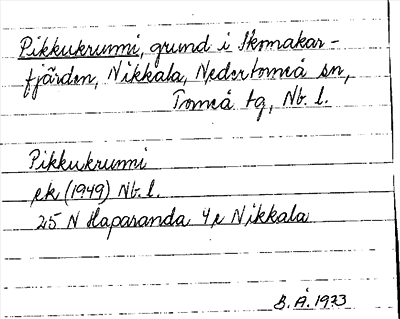 Pikkukrunni, grund i Skomakar-
fjärden, Nikkala, Nedertorneå sn,
Torneå tg, Nb. l.
Pikkukrunni
ek (1949) Nb. l.
25 N Haparanda 4e Nikkala
B. Å. 1973